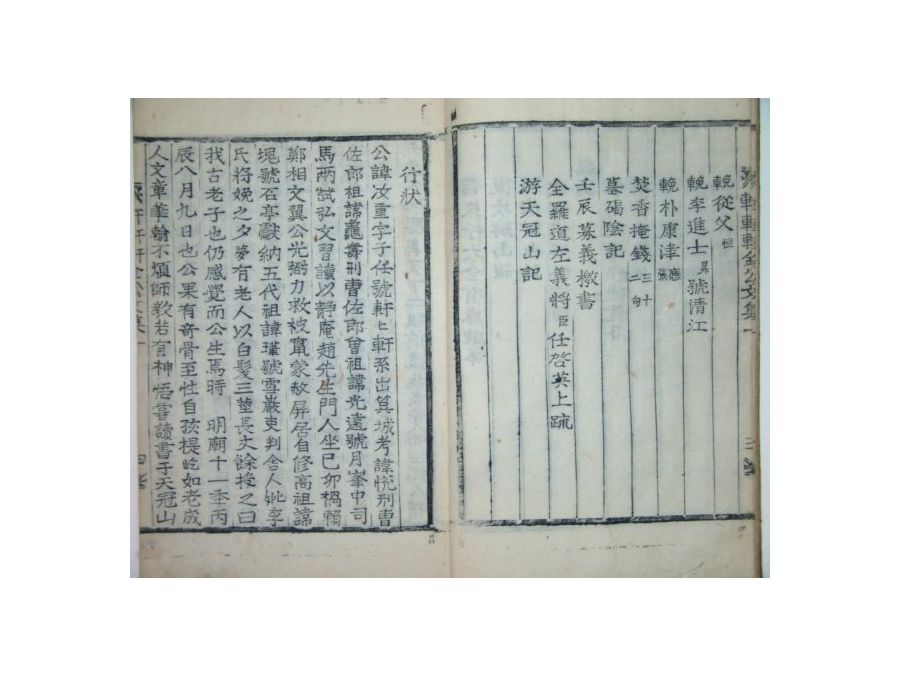 輓從父
輓李進士 昇 號清江
輓朴康津 應
焚香掩錢 三十二句
墓碣陰記
壬辰募義檄書
全羅道左義將臣任啓英上疏
游天冠山記
行狀
公諱汝重字子任號軒匕軒系出箕城考諱悅刑曹
佐郎祖諱龜壽刑曹佐郎曾祖諱光遠號月峯中司
馬兩試弘文習讀以靜庵趙先生門人坐己卯禍賴
鄭相文翼公光弼力救被竄蒙赦屏居自修高祖諱
塊號石亭獻納五代祖諱瑾號雪巖吏判舍人妣李
氏將娩之夕夢有老人以白髮三莖長丈餘授之曰
我古老子也仍感覺而公生焉時 明廟十一季丙
辰八月九日也公果有奇骨至性自孩提屹如老成
人文章華翰不煩師敎若有神悟嘗讀書于天冠山